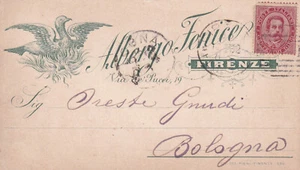 Albergo Fenice
FIRENZE
Via de' Pucci, 19
Sig Oreste Gnudi
Bologna